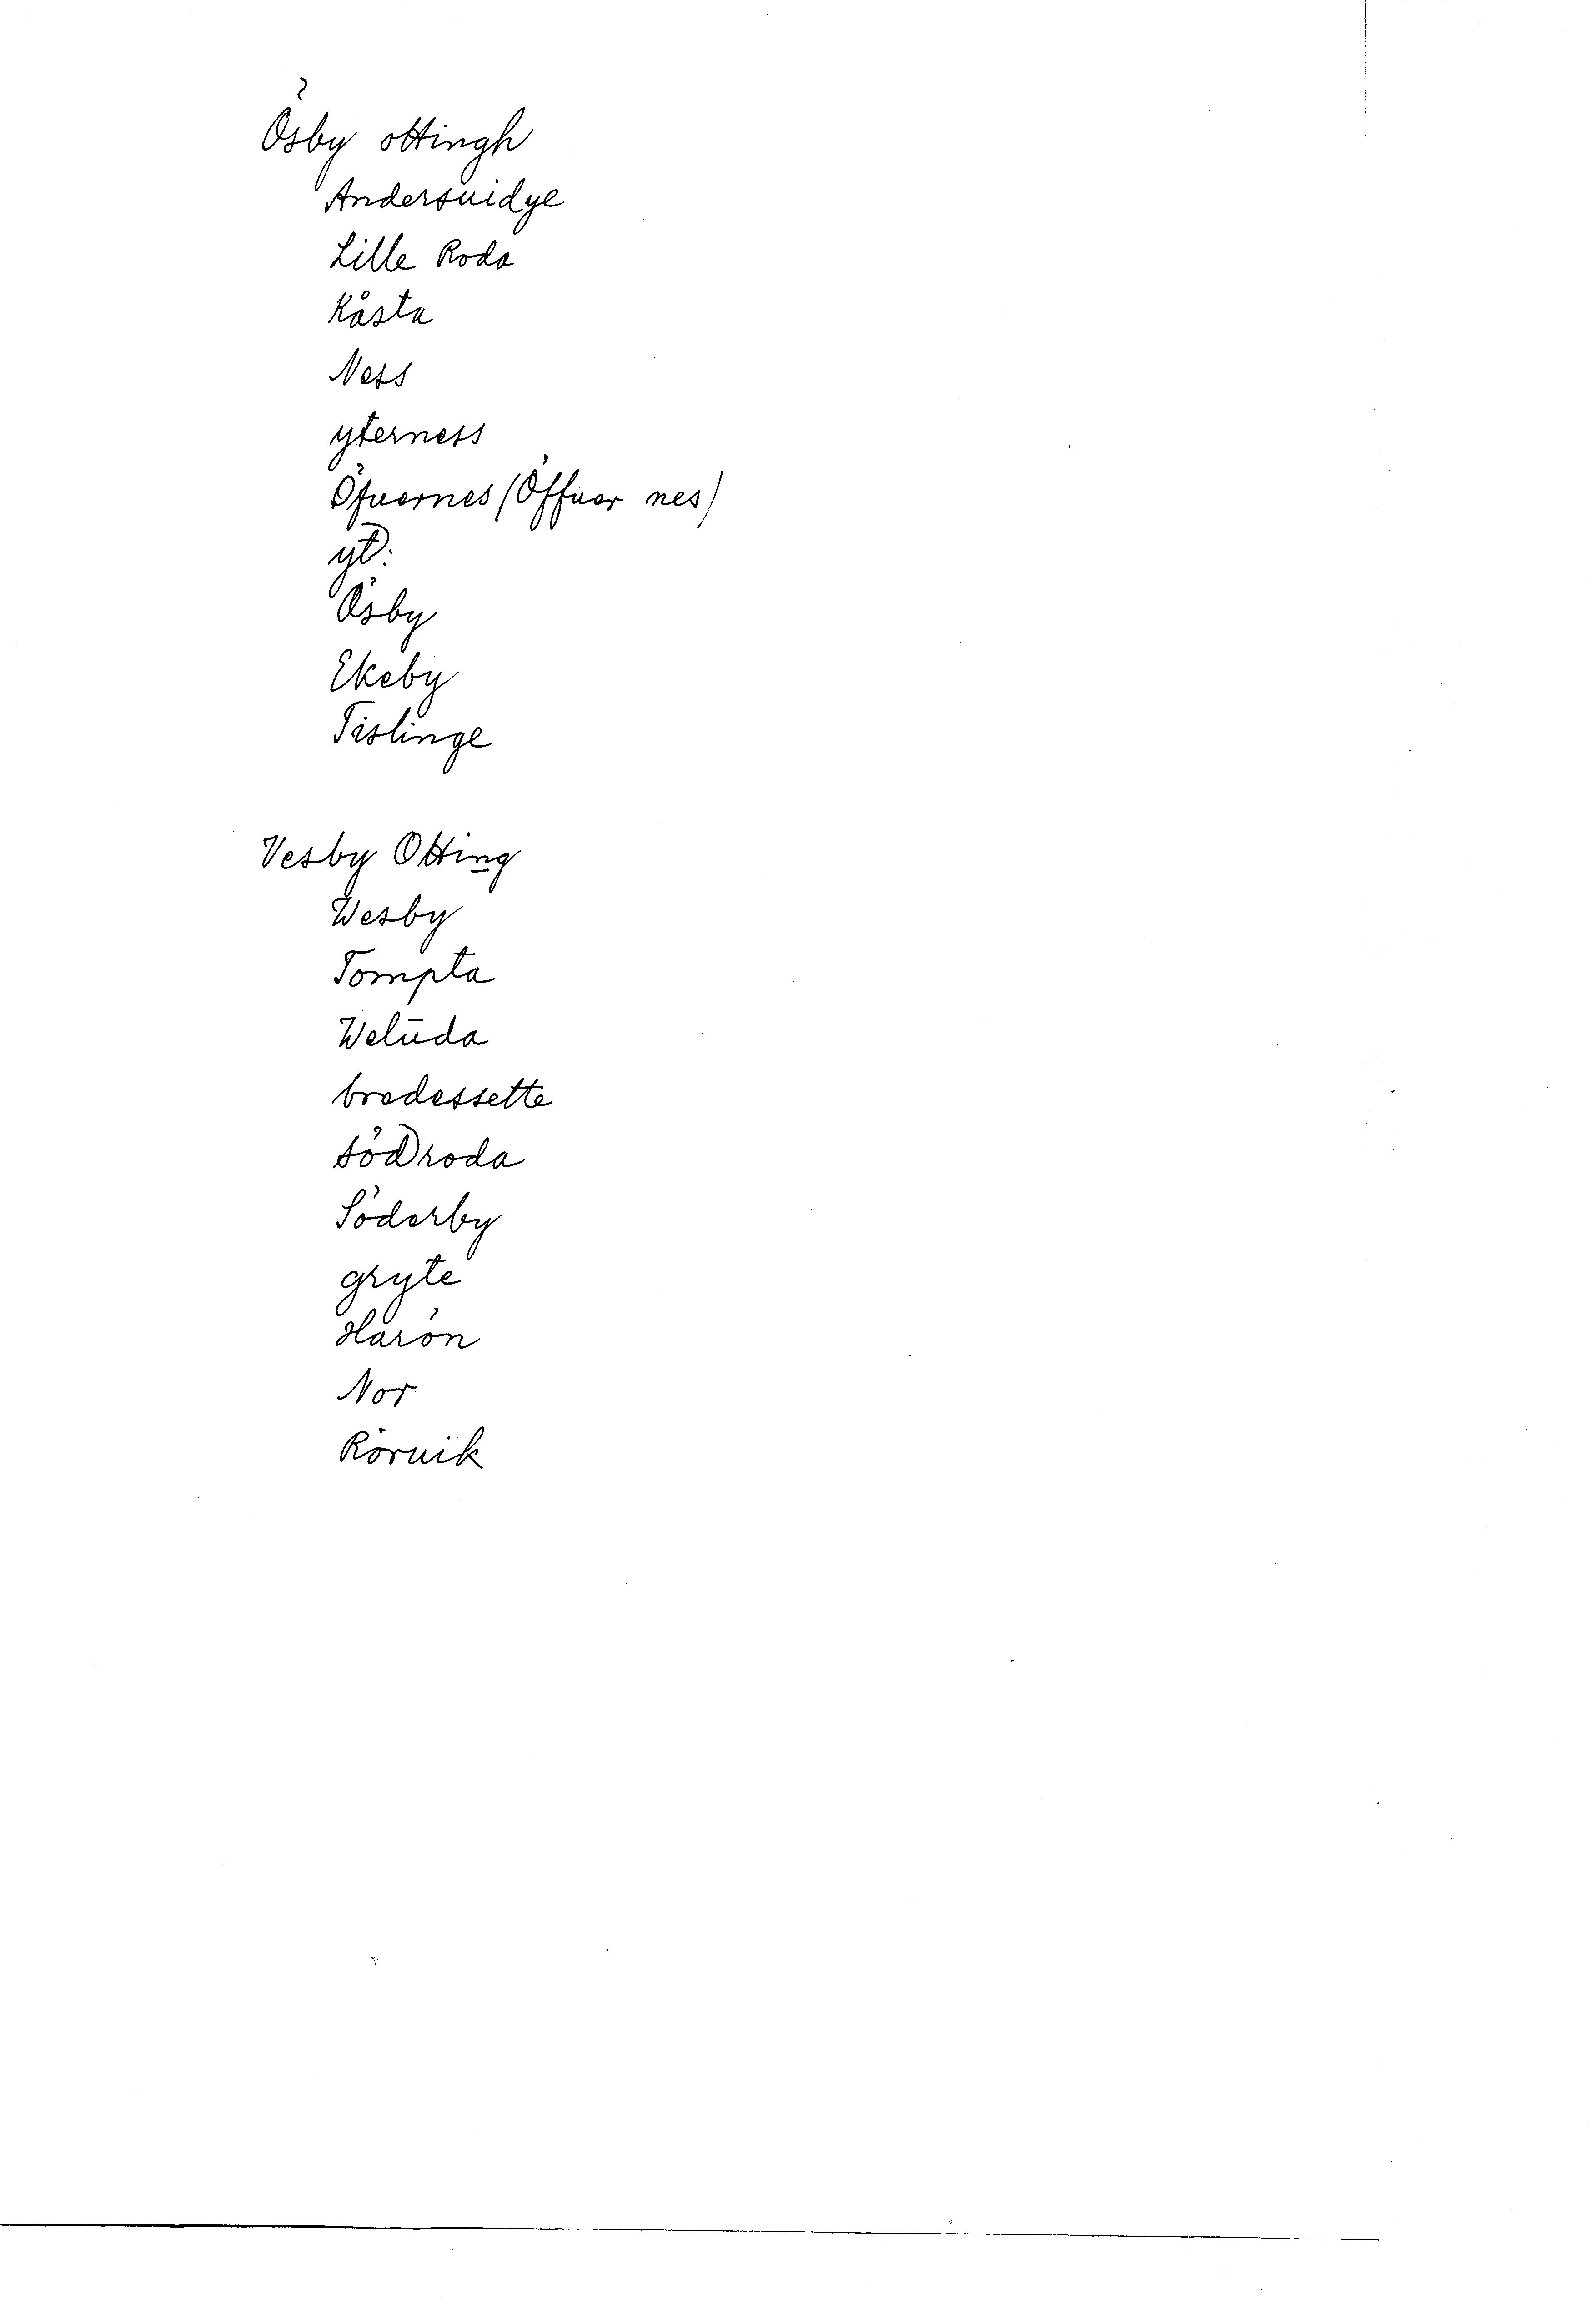 Ösby ottingh
Andersuidye
Lille Roda
Kåsta
Ness
yterness
Öfuernes (Öffuer nes)
yt:
Ösby
Ekeby
Tislinge
Vesby Otting
Wesby
Tompta
Welūda
bredessette
södroda
Söderby
gryte
Harön
Nor
Röruik